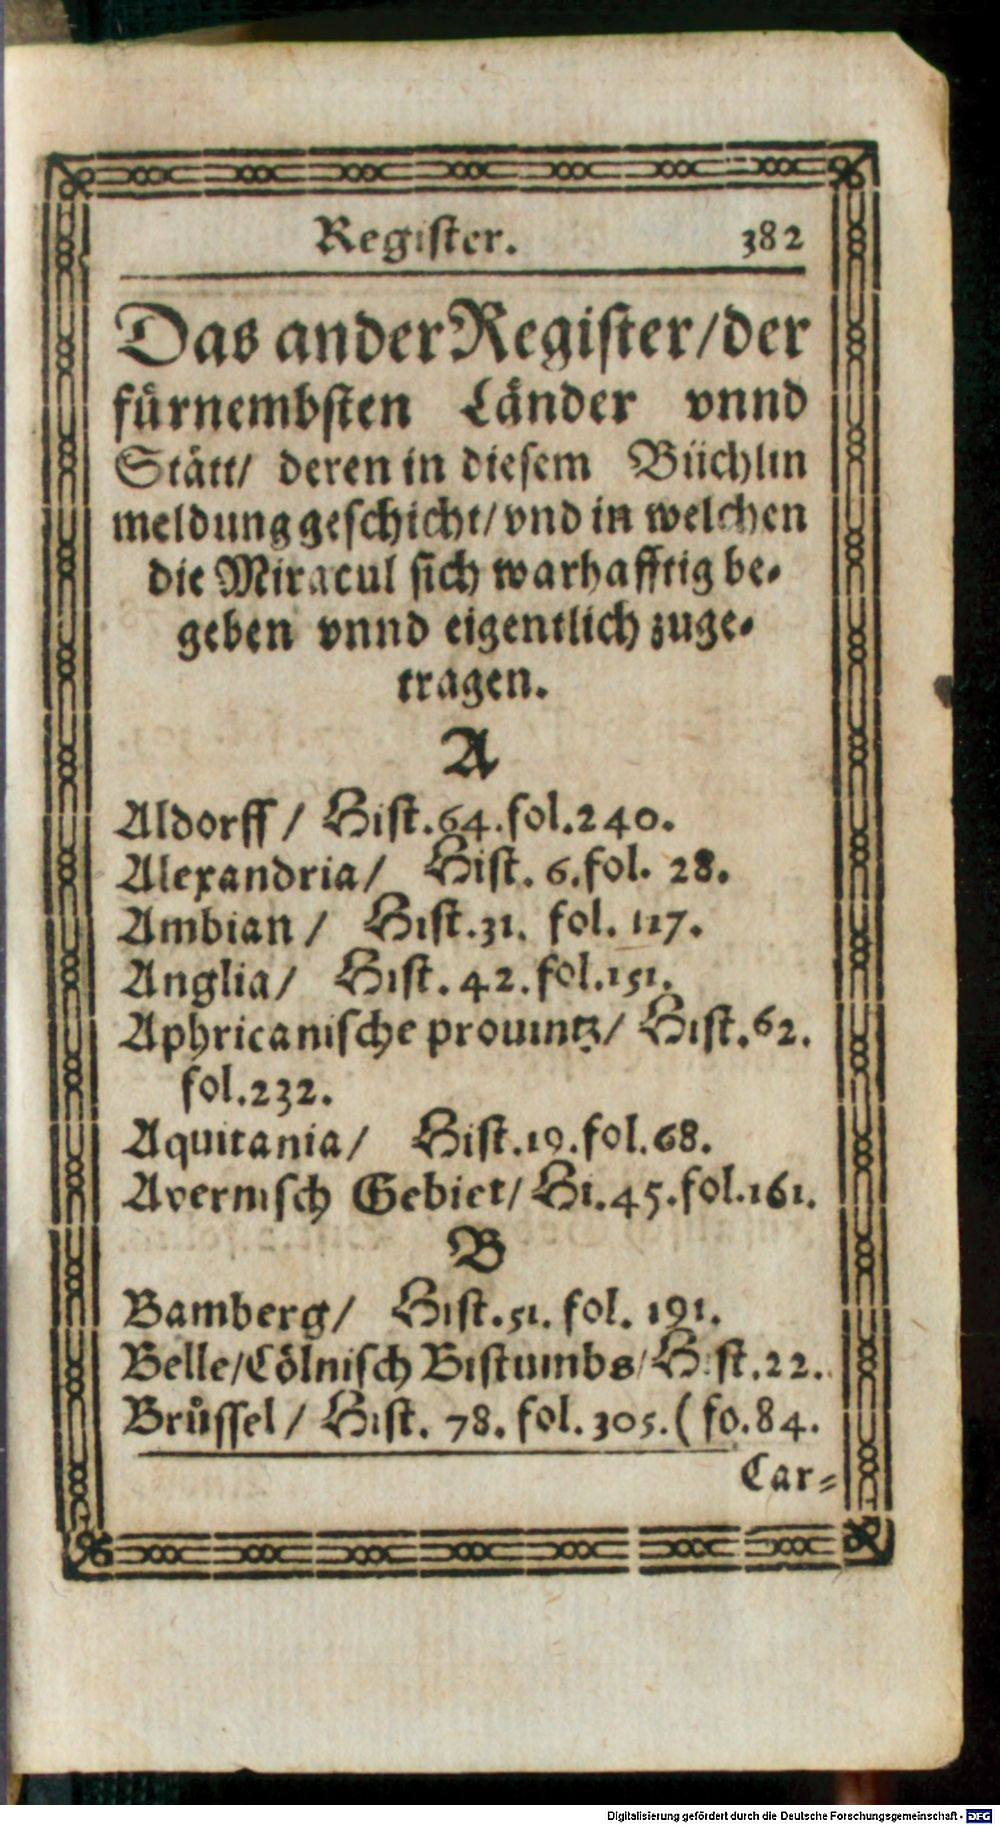 Register. 382
Das ander Register/der
fürnembsten Länder vnnd
Stätt/ deren in diesem Büchlin
meldung geschicht/vnd in welchen
die Miracul sich warhafftig be-
geben vnnd eigentlich zuge-
tragen.
A
Aldorff / Hist.64.fol.240.
Alexandria/ Hist. 6.fol. 28.
Ambian / Hist.31. fol. 117.
Anglia/ Hist. 42.fol.151.
Aphricanische prouintz/ Hist.62.
fol.232.
Aquitania/ Hist.19.fol.68.
Avernisch Gebiet/ Hi.45.fol.161.
B
Bamberg/ Hist.51. fol. 191.
Belle/Cölnisch Bistumbs/Hist.22.
Brůssel / Hist. 78. fol.305.( fo.84.
Car-
Digitalisierung gefördert durch die Deutsche Forschungsgemeinschaft - DFG